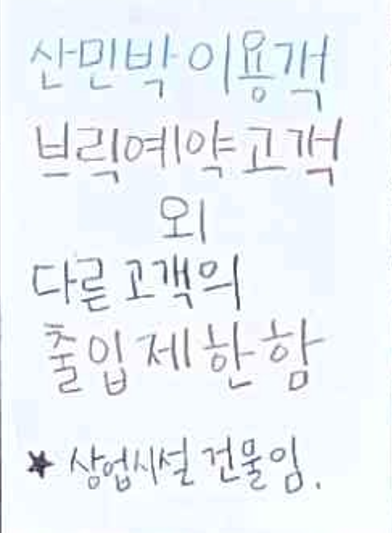 산민박 이용객
브릭예약고객
외
다른 고객의
출입제한함
★ 상업시설 건물임.